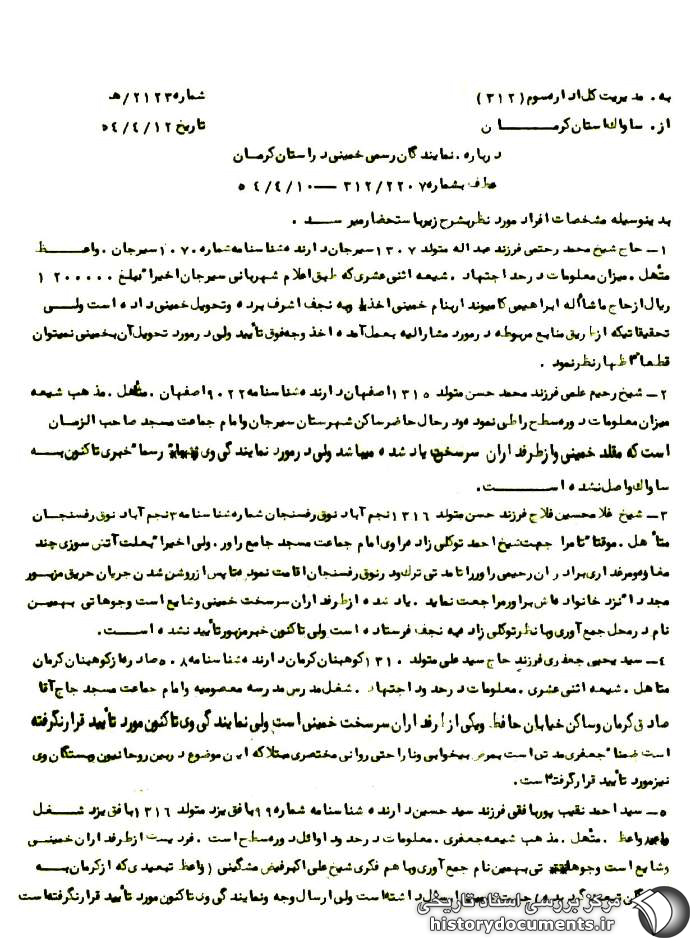 به . مدیریت کل اداره سوم (۳۱۲) شماره ۲۱۲۳/هـ
از . ساواک استان کرمـــــان تاریخ ۵۴/۴/۱۲
درباره . نمایندگان رسمی خمینی در استان کرمـان
عطف بشماره ۳۱۲/۲۲۰۷ — ۵۴/۴/۱۰
بدینوسیله مشخصات افراد مورد نظر بشرح زیر باستحضار میرســد .
۱ــ حاج شیخ محمد رحتمی فرزند عبداله متولد ۱۳۰۷ سیرجان دارنده شناسنامه شماره ۱۰۷۰ سیرجان . واعـــظ
متأهل . میزان معلومات در حد اجتهاد . شیعه اثنی عشری که طبق اعلام شهربانی سیرجان اخیراً مبلغ ۱۲۰۰۰۰۰
ریال از حاج ماشااله ابراهیمی کامیوندار بنام خمینی اخذ وبه نجف اشرف برده و تحویل خمینی داده است ولـــی
تحقیقاتیکه از طریق منابع مربوطه در مورد مشارالیه بعمل آمده اخذ وجه فوق تأیید ولی در مورد تحویل آن بخمینی نمیتوان
قطعاً اظهارنظر نمود .
۲ــ شیخ رحیم علمی فرزند محمد حسن متولد ۱۳۱۵ اصفهان دارنده شناسنامه ۹۰۲۲ اصفهان . متأهل . مذهب شیعه
میزان معلومات دوره سطح را طی نموده ودر حال حاضر ساکن شهرستان سیرجان وامام جماعت مسجد صاحب الزمـان
است که مقلد خمینی واز طرفداران سرسخت یاد شده میباشد ولی در مورد نمایندگی وی رسماً خبری تاکنون بــه
ساواک واصل نشده اســــــت.
۳ــ شیخ غلامحسین فلاح فرزند حسن متولد ۱۳۱۶ نجم آباد نوق رفسنجان شماره شناسنامه ۳ نجم آباد نوق رفسنجـان
متأهل . موقتاً جهت شیخ احمد توکلی زاده راوی امام جماعت مسجد جامع راور . ولی اخیراً بعلت آتش سوزی چند
مغازه ومرفداری برادران رحیمی راور را تا مدتی ترک ودر نوق رفسنجان اقامت نموده تا پس از روشن شدن جریان حریق مزبـور
مجدداً نزد خانواده اش براور مراجعت نماید . یاد شده از طرفداران سرسخت خمینی وشایع است وجوهاتی بهمیــن
نام در محل جمع آوری وبا نظر توکلی زاده به نجف فرستاده است ولی تاکنون خبر مزبور تأیید نشده اســـت.
۴ــ سید یحیی جعفری فرزند حاج سید علی متولد ۱۳۱۰ کوهبنان کرمان دارنده شناسنامه ۵۰۸ صادره از کوهبنان کرمان
متاهل . شیعه اثنی عشری . معلومات در حدود اجتهاد . شغل مدرس مدرسه معصومیه وامام جماعت مسجد حاج آقا
صادق کرمان وساکن خیابان حافظ ویکی از طرفداران سرسخت خمینی است ولی نمایندگی وی تاکنون مورد تأیید قرار نگرفته
است ضمناً جعفری مدتی است بمرض بیخوابی وناراحتی روانی مختصری مبتلا که این موضوع در بین روحانیون وبستگان وی
نیز مورد تأیید قرار گرفته است.
۵ــ سید احمد نقیب پور بافقی فرزند سید حسین دارنده شناسنامه شماره ۹۹ بافق یزد متولد ۱۳۱۶ بافق یزد شـــغل
واعظ . متأهل . مذهب شیعه جعفری . معلومات در حدود اوائل دوره سطح است . فردیست از طرفداران خمینــی
وشایع است وجوهاتی بهمین نام جمع آوری وبا هم فکری شیخ علی اکبر فیض مشگینی (واعظ تبعیدی که از کرمان بــه
ولی ارسال وجه ونمایندگی وی تاکنون مورد تأیید قرار نگرفته است
مرکز بررسی اسناد تاریخی
historydocuments.ir